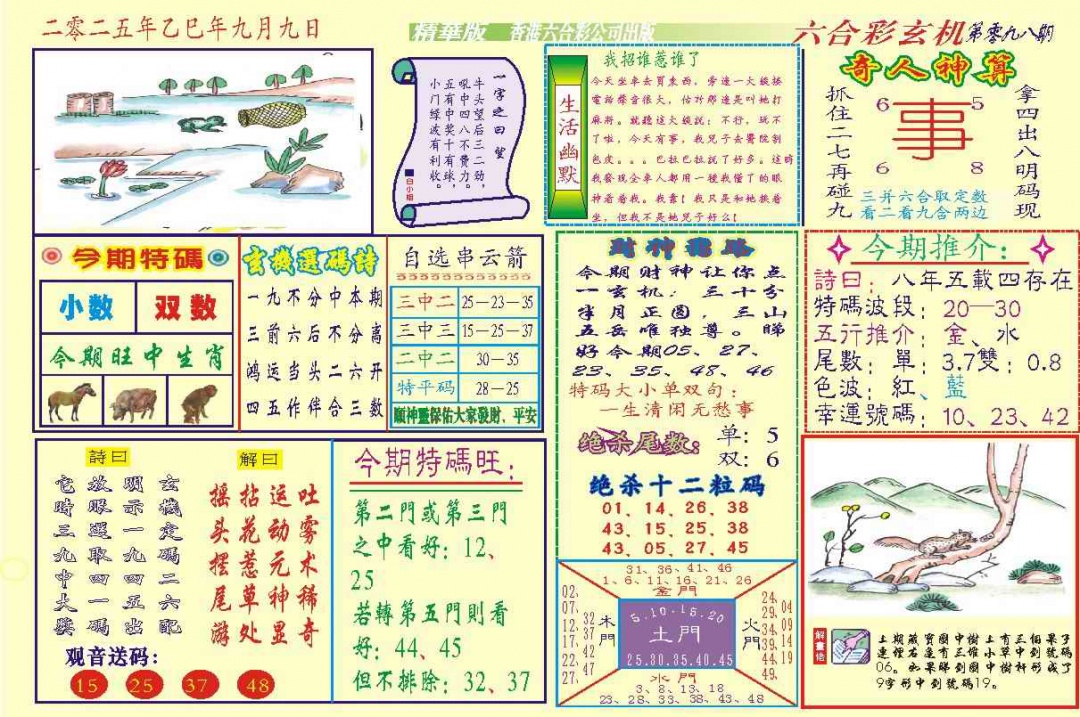 二零二五年乙巳年九月九日
精華版 香港六合彩公司出版
六合彩玄机第零九八期
一字之曰:望
牛头望后三二劲,
吼中四八不費力。
五有中奖十有球,
小门绿波有利收。
白小姐
生活幽默
我招谁惹谁了
今天坐車去買東西。旁邊一大嬸接
電話聲音很大,估計那邊是叫她打
麻将。就聽這大嬸説:不行,玩不
了啦,今天有事,我兒子去醫院割
包皮。。。巴拉巴拉説了好多。這時
我發現全車人都用一種我懂了的眼
神看着我。我靠!我只是和她挨着
坐,但我不是她兒子好么!
奇人神算
抓住二七再碰九
6 5
事
6 8
拿四出八明码现
三并六合取定数
看二看九含两边
今期特碼
小数 双数
今期旺中生肖
玄機選碼詩
一九不分中本期
三前六后不分离
鸿运当头二六开
四五作伴合三数
自选串云箭
三中二 25—23—35
三中三 15—25—37
二中二 30—35
特平码 28—25
顺神靈保佑大家發財、平安
财神
今期财神让你点
一玄机:三十分
半月正圆,三山
五岳唯独尊。睇
好今期05、27、
23、35、48、46
特码大小单双句:
一生清闲无愁事
绝杀尾数:
单:5
双:6
绝杀十二粒码
01、14、26、38
43、15、25、38
43、05、27、45
今期推介:
詩曰:八年五載四存在
特碼波段:20—30
五行推介:金、水
尾數:單:3.7雙:0.8
色波:紅、藍
幸運號碼:10、23、42
詩曰
玄機定碼二六配
明示一九四五出
放眼選取四一碼
它時三九中大獎
解曰
吐雾术稀奇
运动元神显
拈花惹草处
摇头摆尾游
观音送码:
15 25 37 48
今期特碼旺:
第二門或第三門
之中看好:12、
25
若轉第五門則看
好:44、45
但不排除:32、37
31、36、41、46
1、6、11、16、21、26
金門
02、07、12、17、22、27、
32、37、42、47
木門
5.10.15.20
土門
25.30.35.40.45
火門
24、29、34、39、44、49、
04、09、14、19
水門
3、8、13、18
23、28、33、38、43、48
解畫信
上期藏寶圖中樹上有三個果子
連裡右邊有三堆小草中到號碼
06。如果睇到圖中樹幹形成了
9字形中到號碼19。